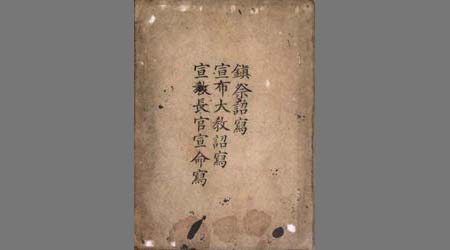 鎭祭詔寫
宣布大敎詔寫
宣敎長官宣命寫